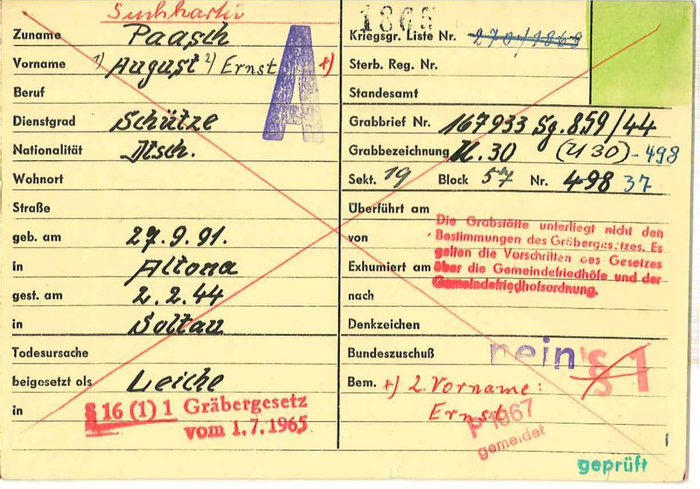 Suchkarte
Zuname Paasch
Vorname 1) August 2) Ernst +)
A
Beruf
Dienstgrad Schütze
Nationalität Dtsch.
Wohnort
Straße
geb. am 27.9.91.
in Altona
gest. am 2.2.44
in Soltau
Todesursache
beigesetzt als Leiche
in
§ 16 (1) 1 Gräbergesetz
vom 1.7.1965
1865
Kriegsgr. Liste Nr. 270/1868
Sterb. Reg. Nr.
Standesamt
Grabbrief Nr. 167933 Sg. 859/44
Grabbezeichnung U.30 (U 30)-498
Sekt. 19 Block 57 Nr. 498 37
Überführt am
von
Exhumiert am
nach
Die Grabstätte unterliegt nicht den
Bestimmungen des Gräbergesetzes. Es
gelten die Vorschriften des Gesetzes
über die Gemeindefriedhöfe und der
Gemeindefriedhofsordnung.
Denkzeichen
Bundeszuschuß nein § 1
Bem. +) 2. Vorname:
Ernst
1967
gemeldet
geprüft